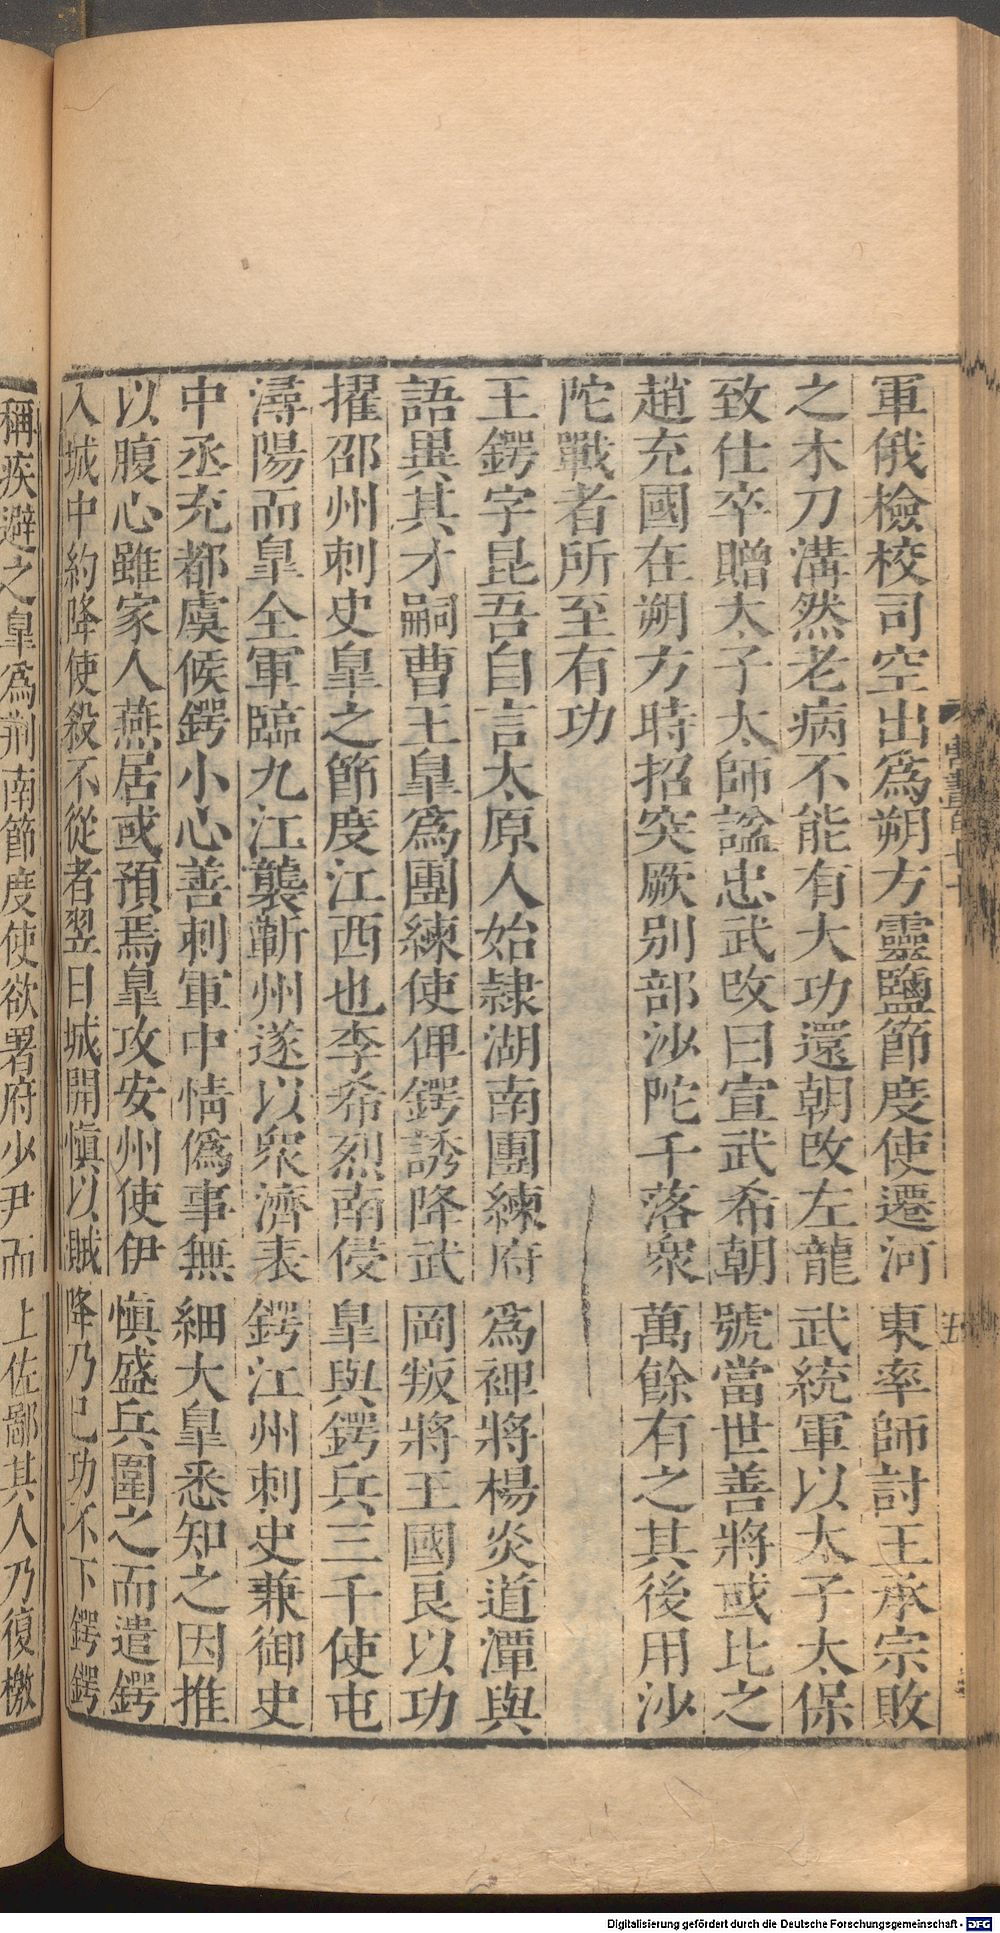 軍俄檢校司空出爲朔方靈鹽節度使遷河東率師討王承宗敗
之木刀溝然老病不能有大功還朝改左龍武統軍以太子太保
致仕卒贈太子太師諡忠武改曰宣武希朝號當世善將或比之
趙充國在朔方時招突厥别部沙陀千落衆萬餘有之其後用沙
陀戰者所至有功
王鍔字昆吾自言太原人始隸湖南團練府爲裨將楊炎道潭與
語異其才嗣曹王皐爲團練使俾鍔誘降武岡叛將王國良以功
擢邵州刺史皐之節度江西也李希烈南侵皐與鍔兵三千使屯
潯陽而皐全軍臨九江襲蘄州遂以衆濟表鍔江州刺史兼御史
中丞充都虞候鍔小心善刺軍中情僞事無細大皐悉知之因推
以腹心雖家人燕居或預焉皐攻安州使伊愼盛兵圍之而遣鍔
入城中約降使殺不從者翌日城開愼以賊降乃己功不下鍔鍔
稱疾避之皐爲荆南節度使欲署府少尹而上佐鄙其人乃復檄
五
Digitalisierung gefördert durch die Deutsche Forschungsgemeinschaft - DFG